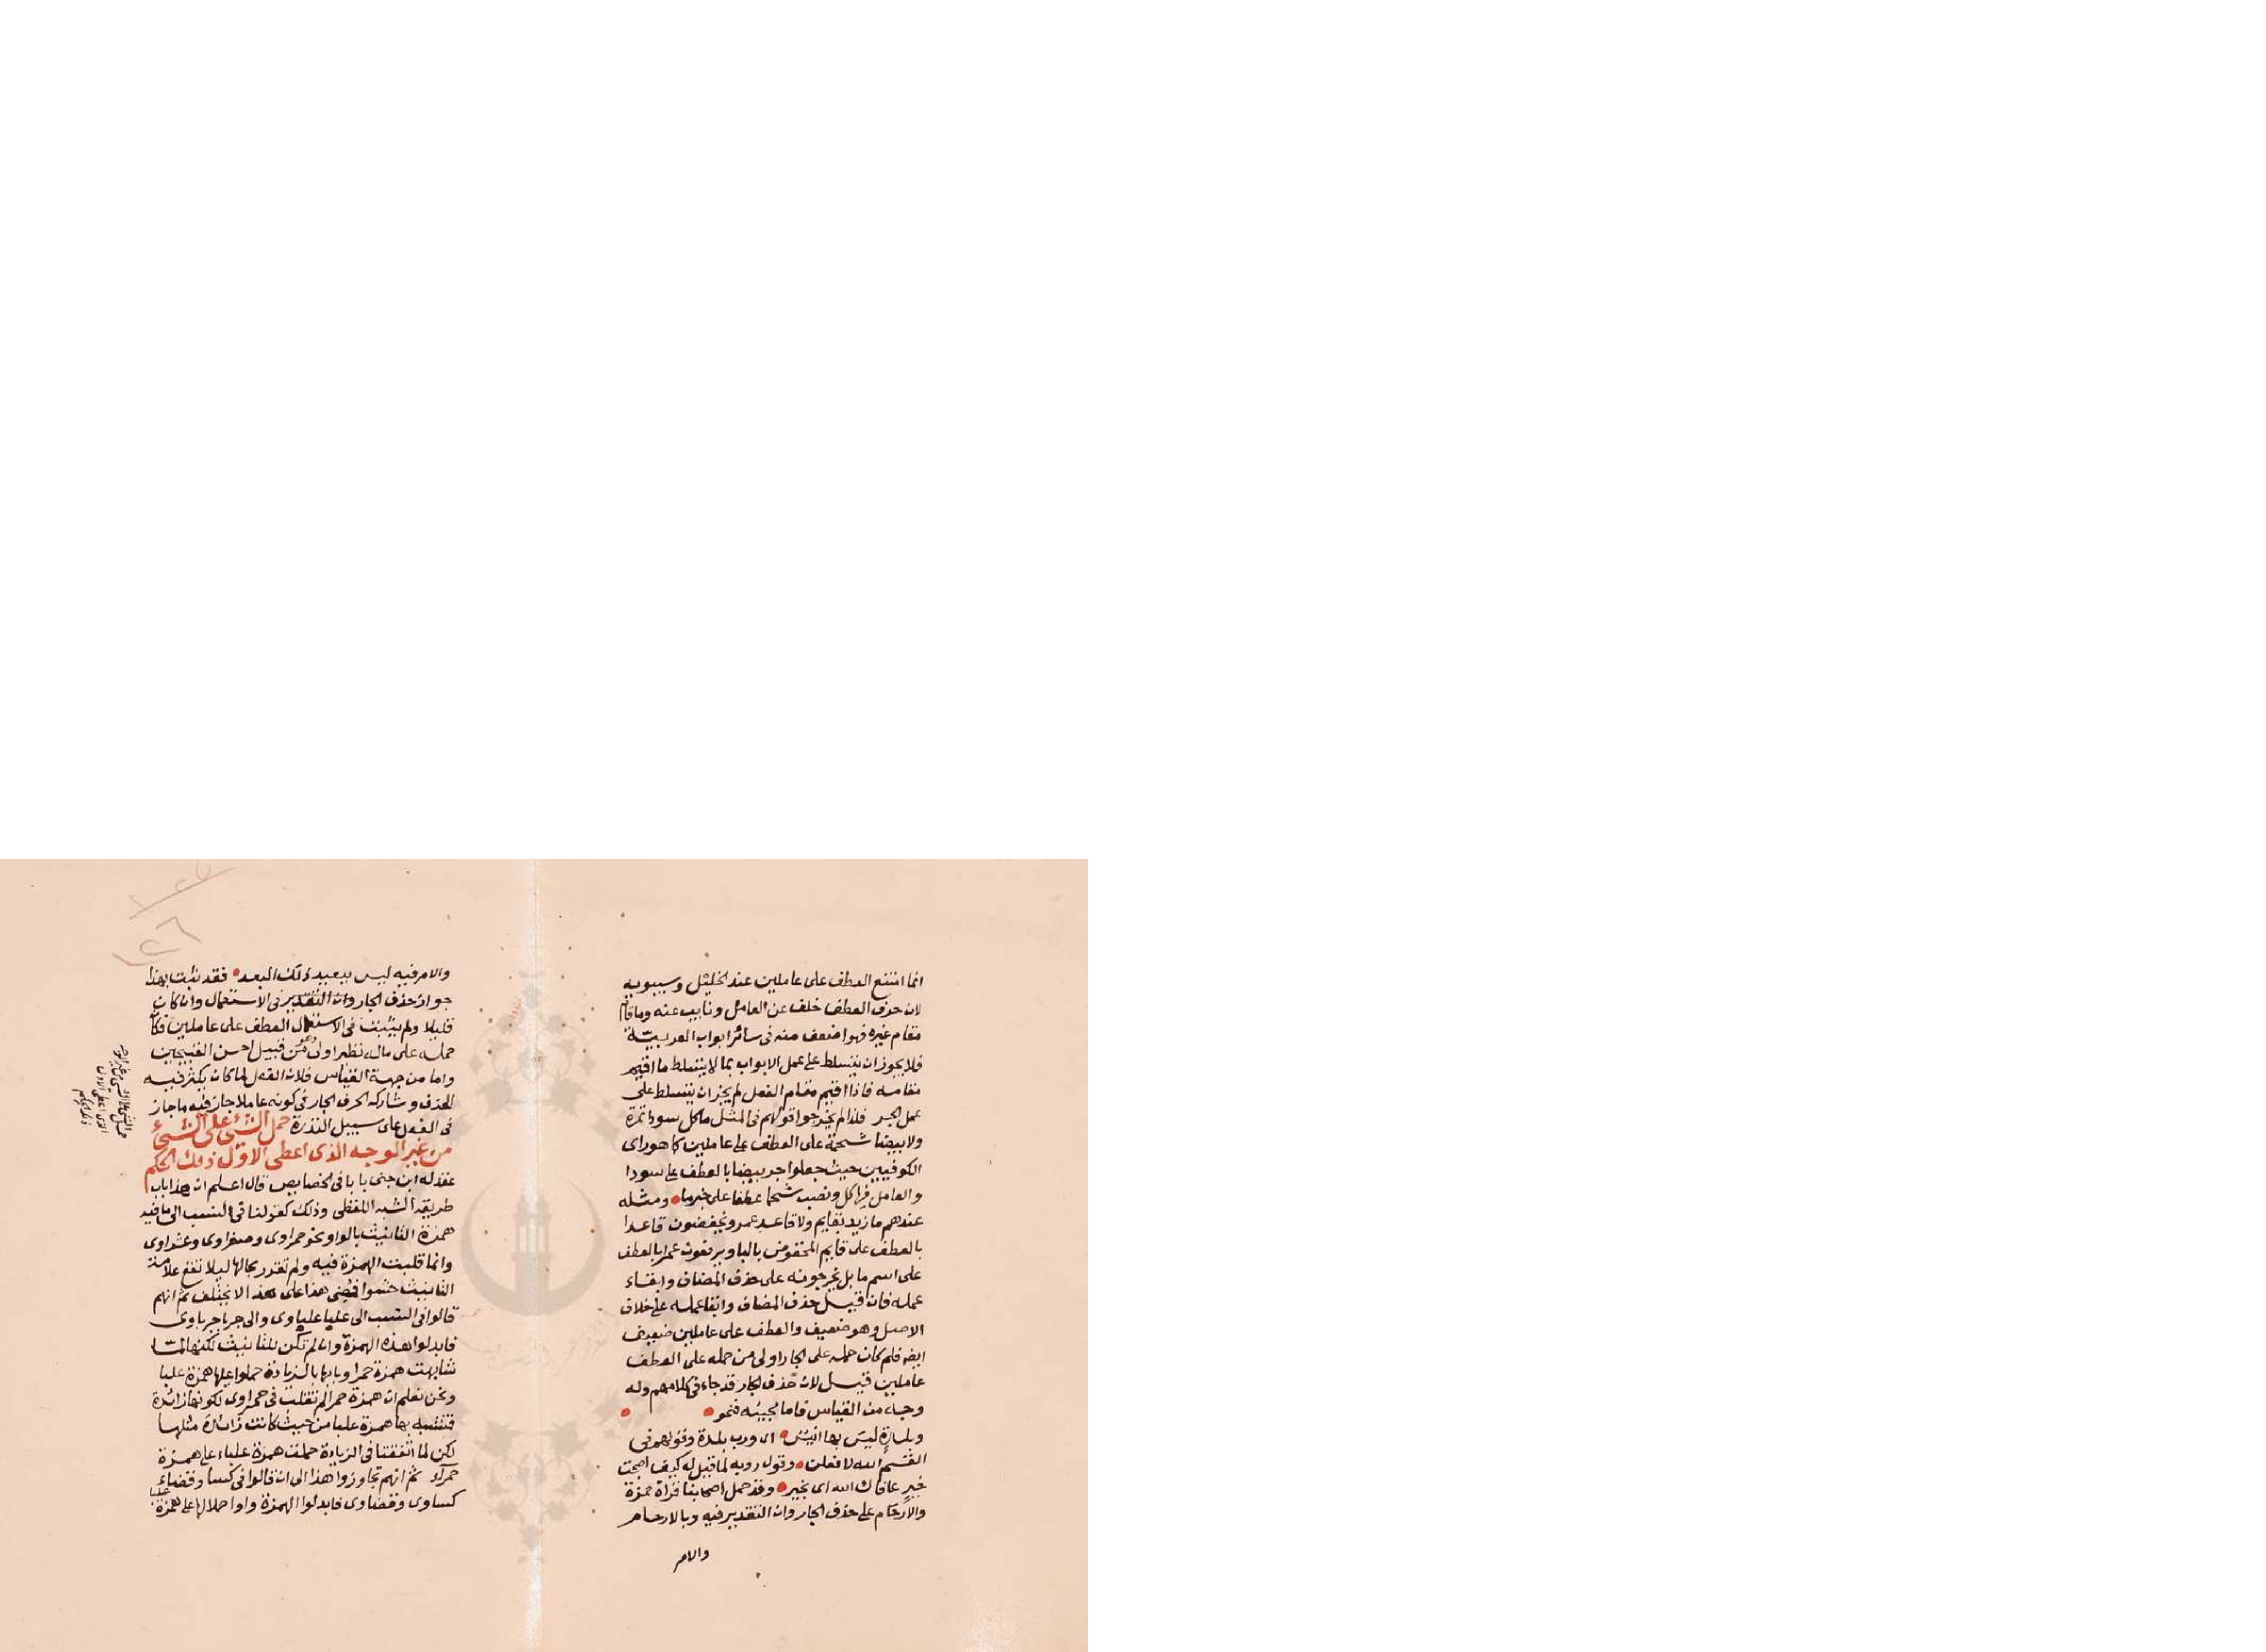 انما امتنع العطف على عاملين عند الخليل وسيبويه
لان حرف العطف خلف عن العامل ونايب عنه وما قام
مقام غيره فهو اضعف منه فى سائر ابواب العربية
فلا يجوز ان يتسلط على عمل الابواب بما لا يتسلط ما اقيم
مقامه فاذا اقيم مقام الفعل لم يجز ان يتسلط على
عمل الجر فلذا لم يخرجوا قولهم فى المثل ما كل سودا تمرة
ولا بيضا شحمة على العطف على عاملين كما هو راى
الكوفيين حيث جعلوا جر بيضا بالعطف على سودا
والعامل فيها كل ونصب شحما عطفا على خبر ما ومثله
عندهم ما زيد بقايم ولا قاعد عمرو ويخفضون قاعدا
بالعطف على قايم المخفوض بالبا ويرفعون عمرا بالعطف
على اسم ما بل يخرجونه على حذف المضاف وابقاء
عمله فان قيل حذف المضاف وابقا عمله على خلاف
الاصل وهو ضعيف والعطف على عاملين ضعيف
ايضا فلم كان حمله على الجار اولى من حمله على العطف
عاملين قيل لان حذف الجار قد جاء فى كلامهم وله
وجه من القياس فاما مجيئه فنحو
وبلدة ليس بها انيس اى ورب بلدة وقولهم فى
القسم الله لا فعلن وقول روبه لما قيل له كيف اصبحت
خير عافاك الله اى بخير وقد حمل اصحابنا قراة حمزة
والارحام على حذف الجار وان التقدير فيه وبالارحام
والامر
والامر فيه ليس ببعيد ذلك البعد فقد ثبت بهذا
جواز حذف الجار وان التقدير فى الاستعمال وان كان
قليلا ولم يثبت فى الاستعمال العطف على عاملين فكان
حمله على ماله نظير اولى وهو من قبيل احسن القبيحين
واما من جهة القياس فلان الفعل لما كان يكثر فيه
الحذف وشاركه الحرف الجار فى كونه عاملا جاز فيه ما جاز
فى الفعل على سبيل الندرة حمل الشئ على الشئ
من غير الوجه الذى اعطى الاول ذلك الحكم
عقد له ابن جنى بابا فى الخصايص قال اعلم ان هذا باب
طريقه الشبه اللفظى وذلك كقولنا فى النسب الى ما فيه
همزة التانيث بالواو نحو حمراوى وصفراوى وعشراوى
وانما قلبت الهمزة فيه ولم تقرر بحالها ليلا تقع علامة
التانيث حشوا فمضى هذا على هذا لا يختلف ثم انهم
قالوا فى النسب الى عليا علياوى والى حربا حرباوى
فابدلوا هذه الهمزة وان لم تكن للتانيث لكنها لما
شابهت همزة حمرا وبابها بالزيادة حملوا عليها همزة عليا
ونحن نعلم ان همزة حمرا لم تقلب فى حمراوى لكونها زائدة
فتشبه بها همزة عليا من حيث كانت زائدة مثلها
لكن لما اتفقتا فى الزيادة حملت همزة علباء على همزة
حمراء ثم انهم تجاوزوا هذا الى ان قالوا فى كسا وقضاء
كساوى وقضاوى فابدلوا الهمزة واوا حملا لها على همزة علبا
حمل الشئ على الشئ من غير الوجه
الذى اعطى الاول
ذلك الحكم